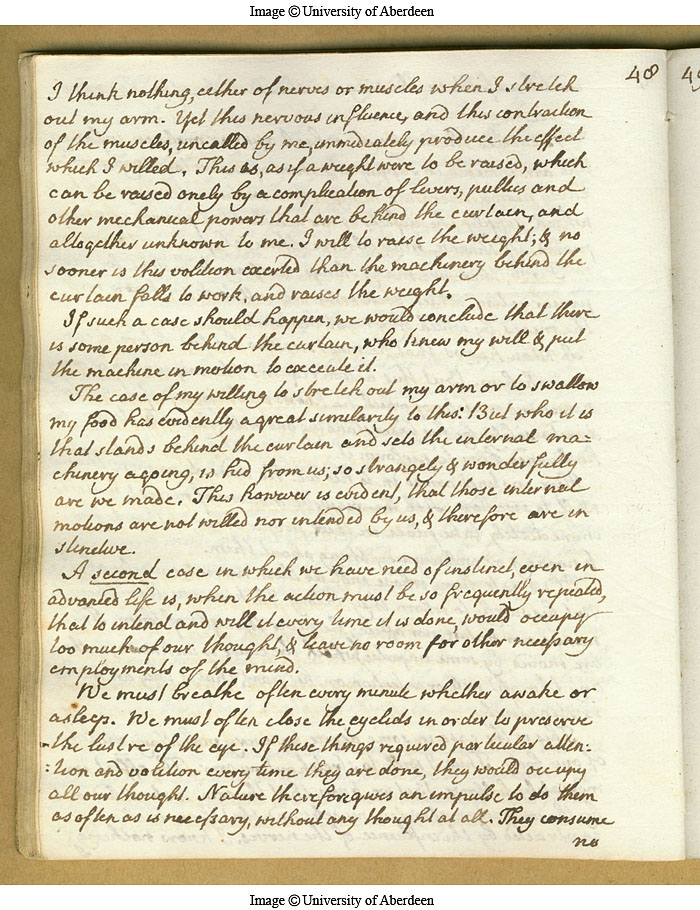 Image © University of Aberdeen
48
49
I think nothing, either of nerves or muscles when I stretch
out my arm. Yet this nervous influence, and this contraction
of the muscles, uncalled by me, immediately produce the effect
which I willed. This is, as if a weight were to be raised, which
can be raised onely by a complication of levers, pullies and
other mechanical powers that are behind the curtain, and
altogether unknown to me. I will to raise the weight; & no
sooner is this volition exerted than the machinery behind the
curtain falls to work, and raises the weight.
If such a case should happen, we would conclude that there
is some person behind the curtain, who knew my will & put
the machine in motion to execute it.
The case of my willing to stretch out my arm or to swallow
my food has evidently a great similarity to this: But who it is
that stands behind the curtain and sets the internal ma=
chinery agoing, is hid from us; so strangely & wonderfully
are we made. This however is evident, that those internal
motions are not willed nor intended by us, & therefore are in
stinctive.
A second case in which we have need of instinct, even in
advanced life is, when the action must be so frequently repeated,
that to intend and will it every time it is done, would occupy
too much of our thought, & leave no room for other necessary
employments of the mind.
We must breathe often every minute whether awake or
asleep. We must often close the eyelids in order to preserve
the lustre of the eye. If these things required particular atten:
:tion and volition every time they are done, they would occupy
all our thought. Nature therefore gives an impulse to do them
as often as is necessary, without any thought at all. They consume
no
Image © University of Aberdeen